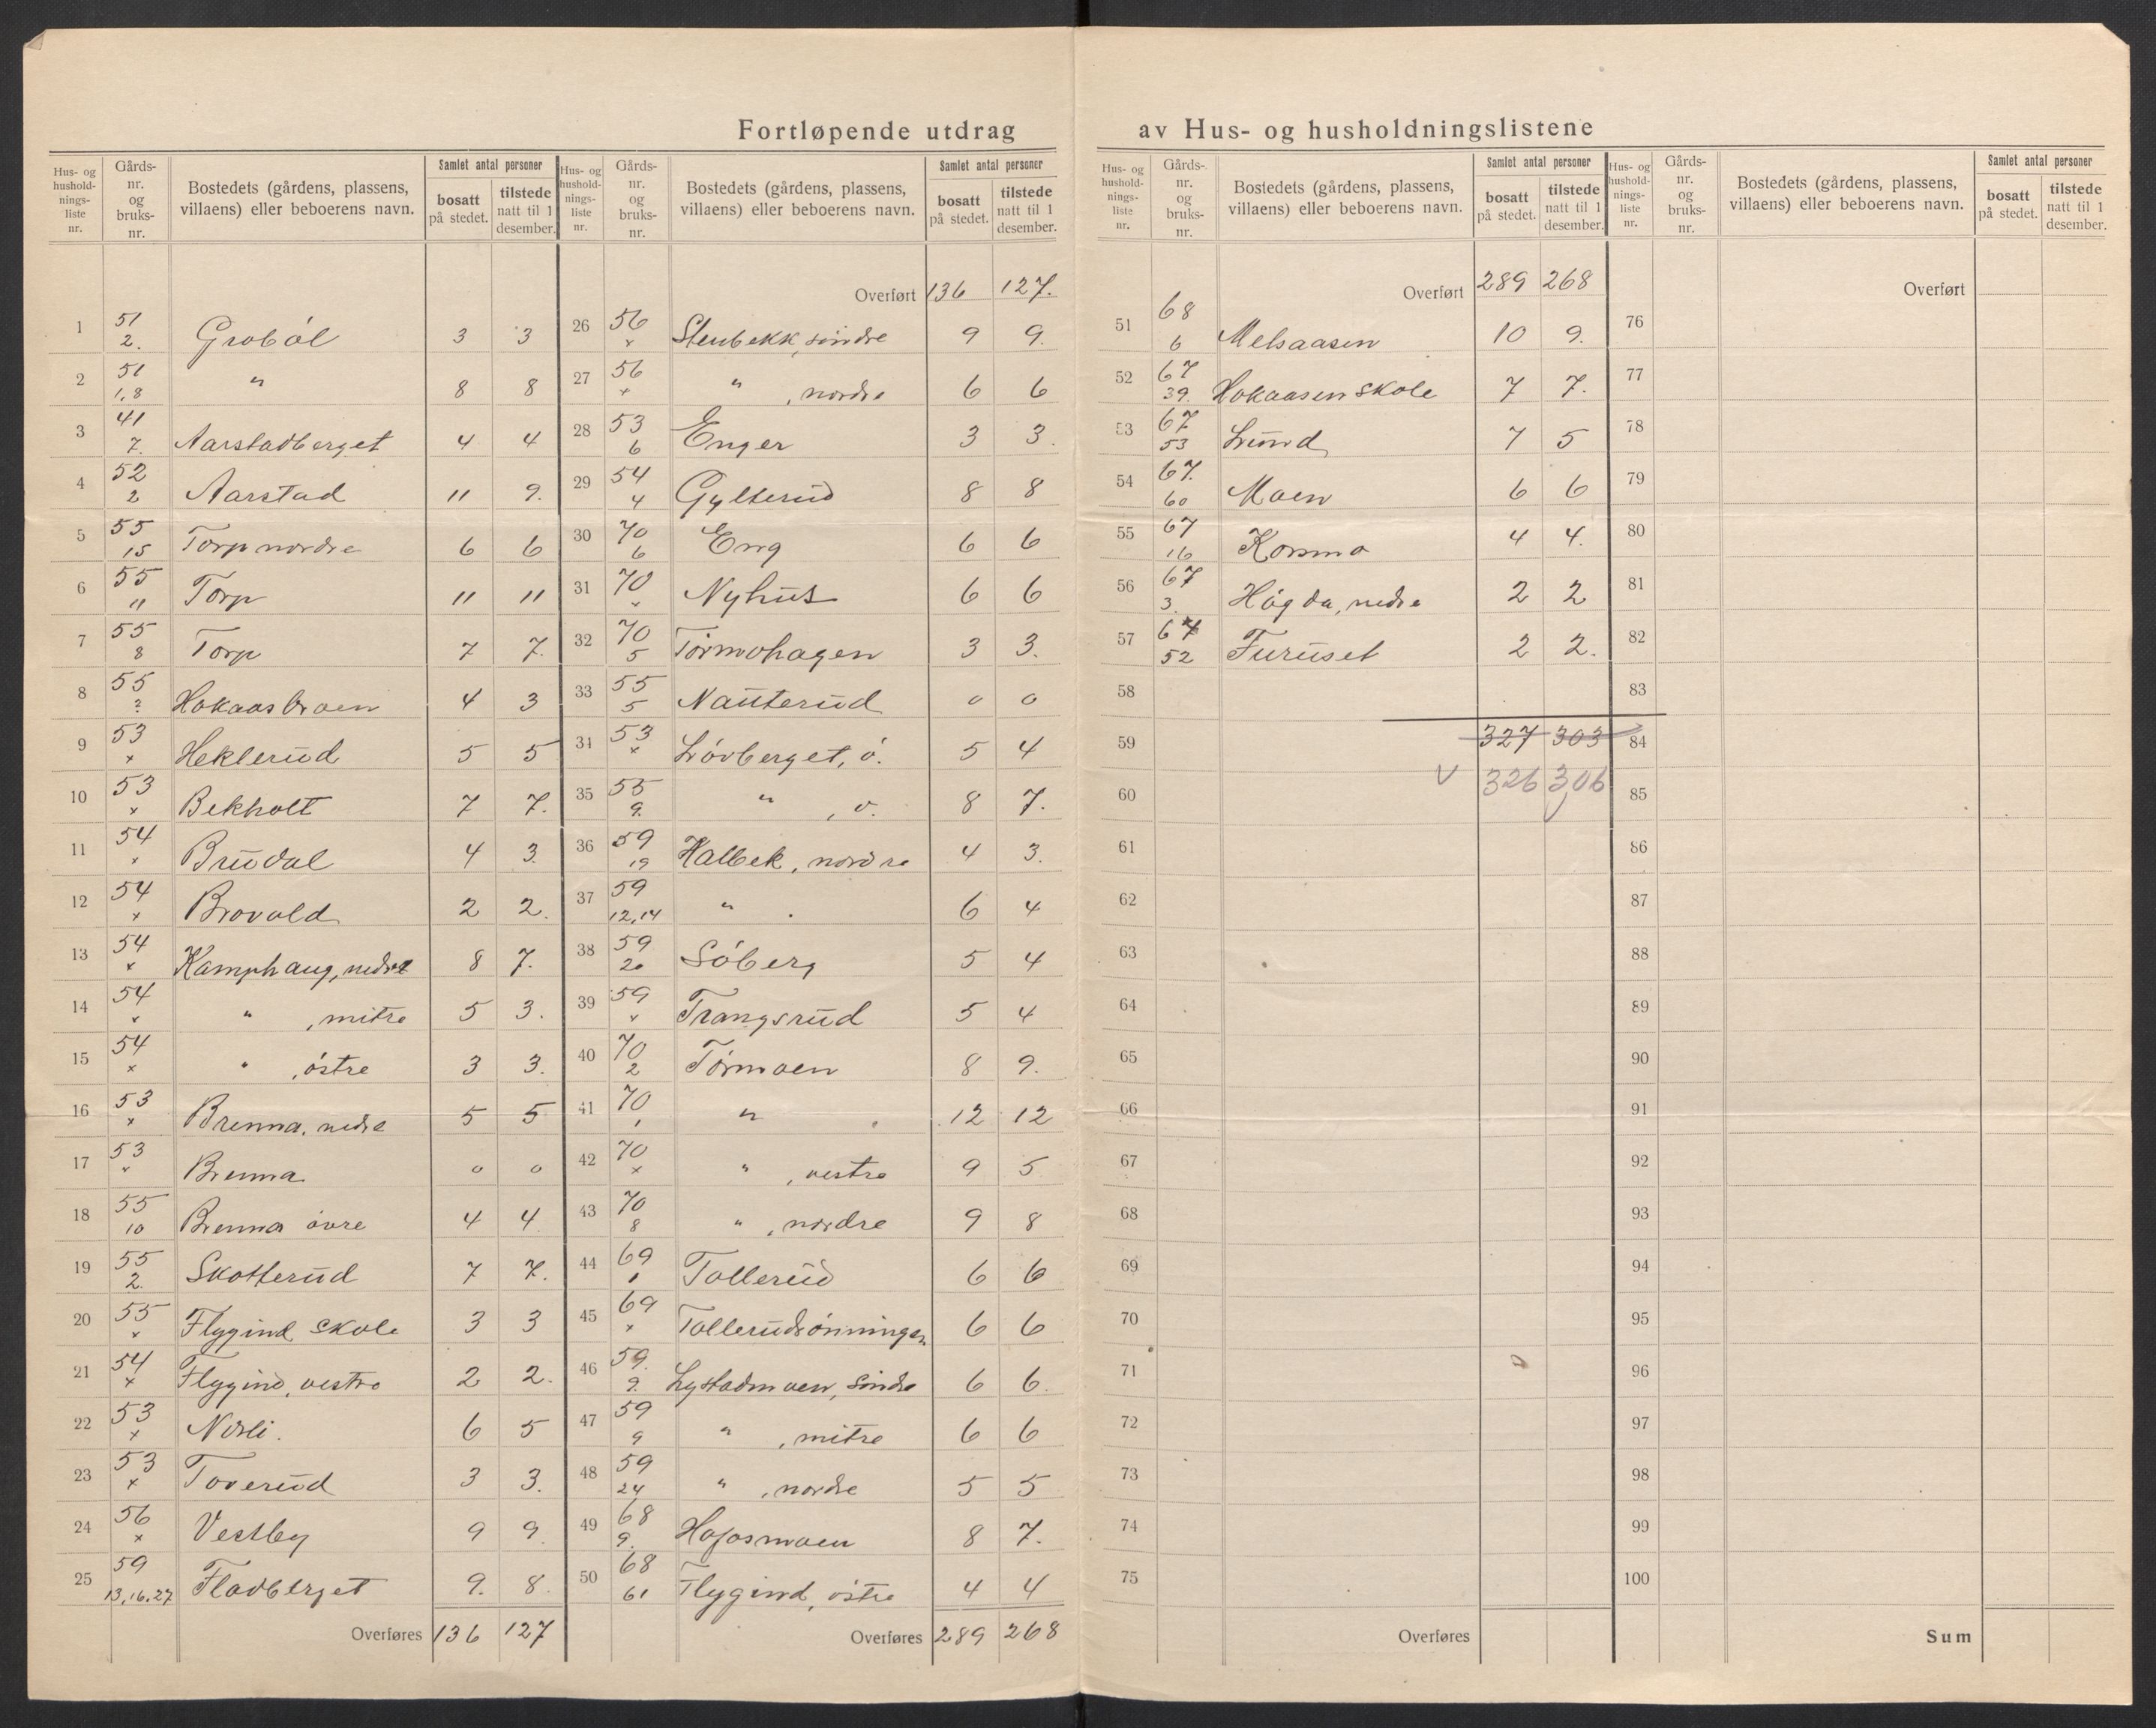 Fortløpende utdrag av Hus- og husholdningslistene
Hus- og hushold-nings-liste nr. Gårds-nr. og bruks-nr. Bostedets (gårdens, plassens, villaens) eller beboerens navn. Samlet antal personer bosatt på stedet. tilstede natt til 1 desember.
1 51 2. Grobøl 3 3
2 51 1,8 " 8 8
3 41 7. Aarstadberget 4 4
4 52 2 Aarstad 11 9.
5 55 15 Torp nordre 6 6
6 55 11 Torp 11 11
7 55 8 Torp 7 7.
8 55 ? Hokaasbraen 4 3
9 53 x Heklerud 5 5
10 53 x Bekholt 7 7.
11 54 x Brudal 4 3.
12 54 x Brovold 2 2.
13 54 x Kamphaug, nedre 8 7.
14 54 x " , mitre 5 3.
15 54 x " , østre 3 3.
16 53 x Brenna, nedre 5 5
17 53 x Brenna 0 0
18 55 10 Brenna øvre 4 4
19 55 2. Skotterud 7 7.
20 55 x Flygind skole 3 3
21 54 x Flygind, vestre 2 2.
22 53 x Norli. 6 5
23 53 x Toverud 3 3.
24 56 x Vestby 9 9.
25 59 13,16,27 Fladberget 9. 8.
Overføres 136 127
Hus- og hushold-nings-liste nr. Gårds-nr. og bruks-nr. Bostedets (gårdens, plassens, villaens) eller beboerens navn. Samlet antal personer bosatt på stedet. tilstede natt til 1 desember.
Overført 136 127.
26 56 x Stenbekk, søndre 9 9.
27 56 x " , nordre 6 6
28 53 6 Enger 3 3.
29 54 4 Gylterud 8 8
30 70 6 Eng 6 6
31 70 x Nyhus 6 6
32 70 5 Tormohagen 3 3.
33 55 5 Nauterud 0 0
34 53 x Løvberget, ø. 5 4
35 55 9. " , v. 8 7.
36 59 19 Halbek, nordre 4 3.
37 59 12,14 " . 6 4
38 59 20 Søberg 5 4
39 59 x Trangsrud 5 4
40 70 2 Tormoen 8 9.
41 70 1 " . 12 12
42 70 x " , vestre 9 5
43 70 8 " , nordre 9 8
44 69 1 Tollerud 6 6
45 69 x Tollerudrønningen 6 6
46 59. 9. Lystadmoen, søndre 6 6.
47 59 9 " , mitre 6 6
48 59 24 " , nordre 5 5
49 68 9. Hafosmoen 8 7.
50 68 61 Flygind, østre 4 4
Overføres 289 268
Hus- og hushold-nings-liste nr. Gårds-nr. og bruks-nr. Bostedets (gårdens, plassens, villaens) eller beboerens navn. Samlet antal personer bosatt på stedet. tilstede natt til 1 desember.
Overført 289 268
51 68 6 Melsaasen 10 9.
52 67 39. Hokaasen skole 7 7.
53 67 53 Lund 7 5
54 67. 60 Moen 6 6
55 67 16 Kosmo 4 4.
56 67 3. Høgda, nedre 2 2
57 67 52 Furuset 2 2.
58
59 327 303
60 V 326 306
61
62
63
64
65
66
67
68
69
70
71
72
73
74
75
Overføres
Hus- og hushold-nings-liste nr. Gårds-nr. og bruks-nr. Bostedets (gårdens, plassens, villaens) eller beboerens navn. Samlet antal personer bosatt på stedet. tilstede natt til 1 desember.
Overført
76
77
78
79
80
81
82
83
84
85
86
87
88
89
90
91
92
93
94
95
96
97
98
99
100
Sum